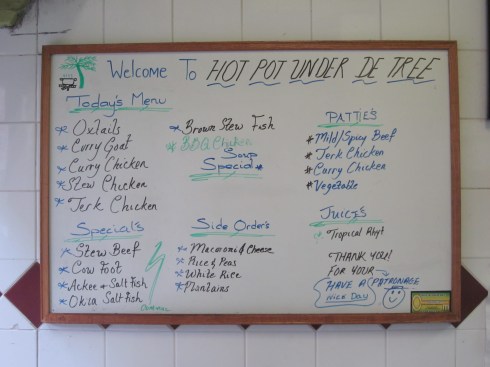 Welcome To HOT POT UNDER DE TREE
Today's Menu
* Oxtails
* Curry Goat
* Curry Chicken
* Stew Chicken
* Jerk Chicken
* Brown Stew Fish
* BBQ Chicken
Soup
Special
PATTIES
# Mild/Spicy Beef
# Jerk Chicken
# Curry Chicken
# Vegetable
Special's
* Stew Beef
* Cow Foot
* Ackee & Salt Fish
* Okra Salt Fish
Side Order's
* Macaroni & Cheese
* Rice & Peas
* White Rice
* Plantains
JUICE'S
Tropical
THANK YOU!
FOR YOUR
PATRONAGE
HAVE A
NICE DAY